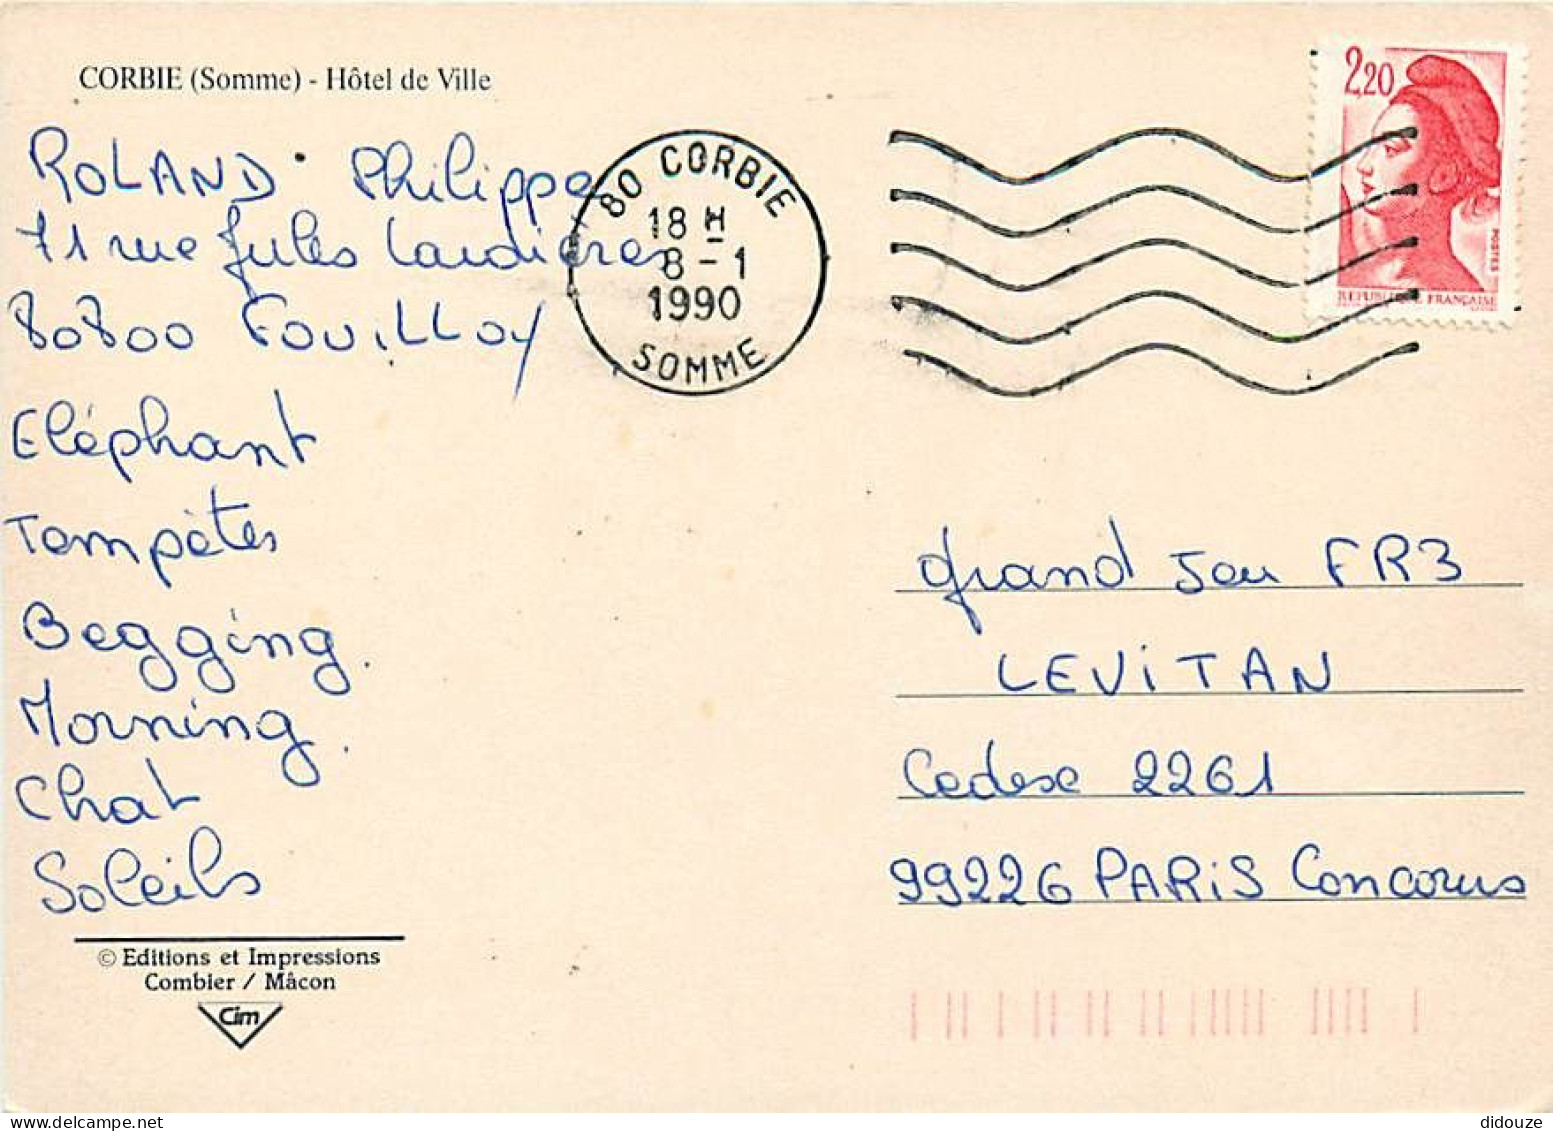 CORBIE (Somme) - Hôtel de Ville
ROLAND Philippe
71 rue Jules Lardières
80800 FOUILLOY
Eléphant
Tempêtes
Begging.
Morning.
Chat
Soleils
© Editions et Impressions
Combier / Mâcon
Cim
80 CORBIE
18 H
8-1
1990
SOMME
2,20
POSTES
REPUBLIQUE FRANÇAISE
grand Jeu FR3
LEVITAN
Cedex 2261
99226 PARIS Concours
didouze